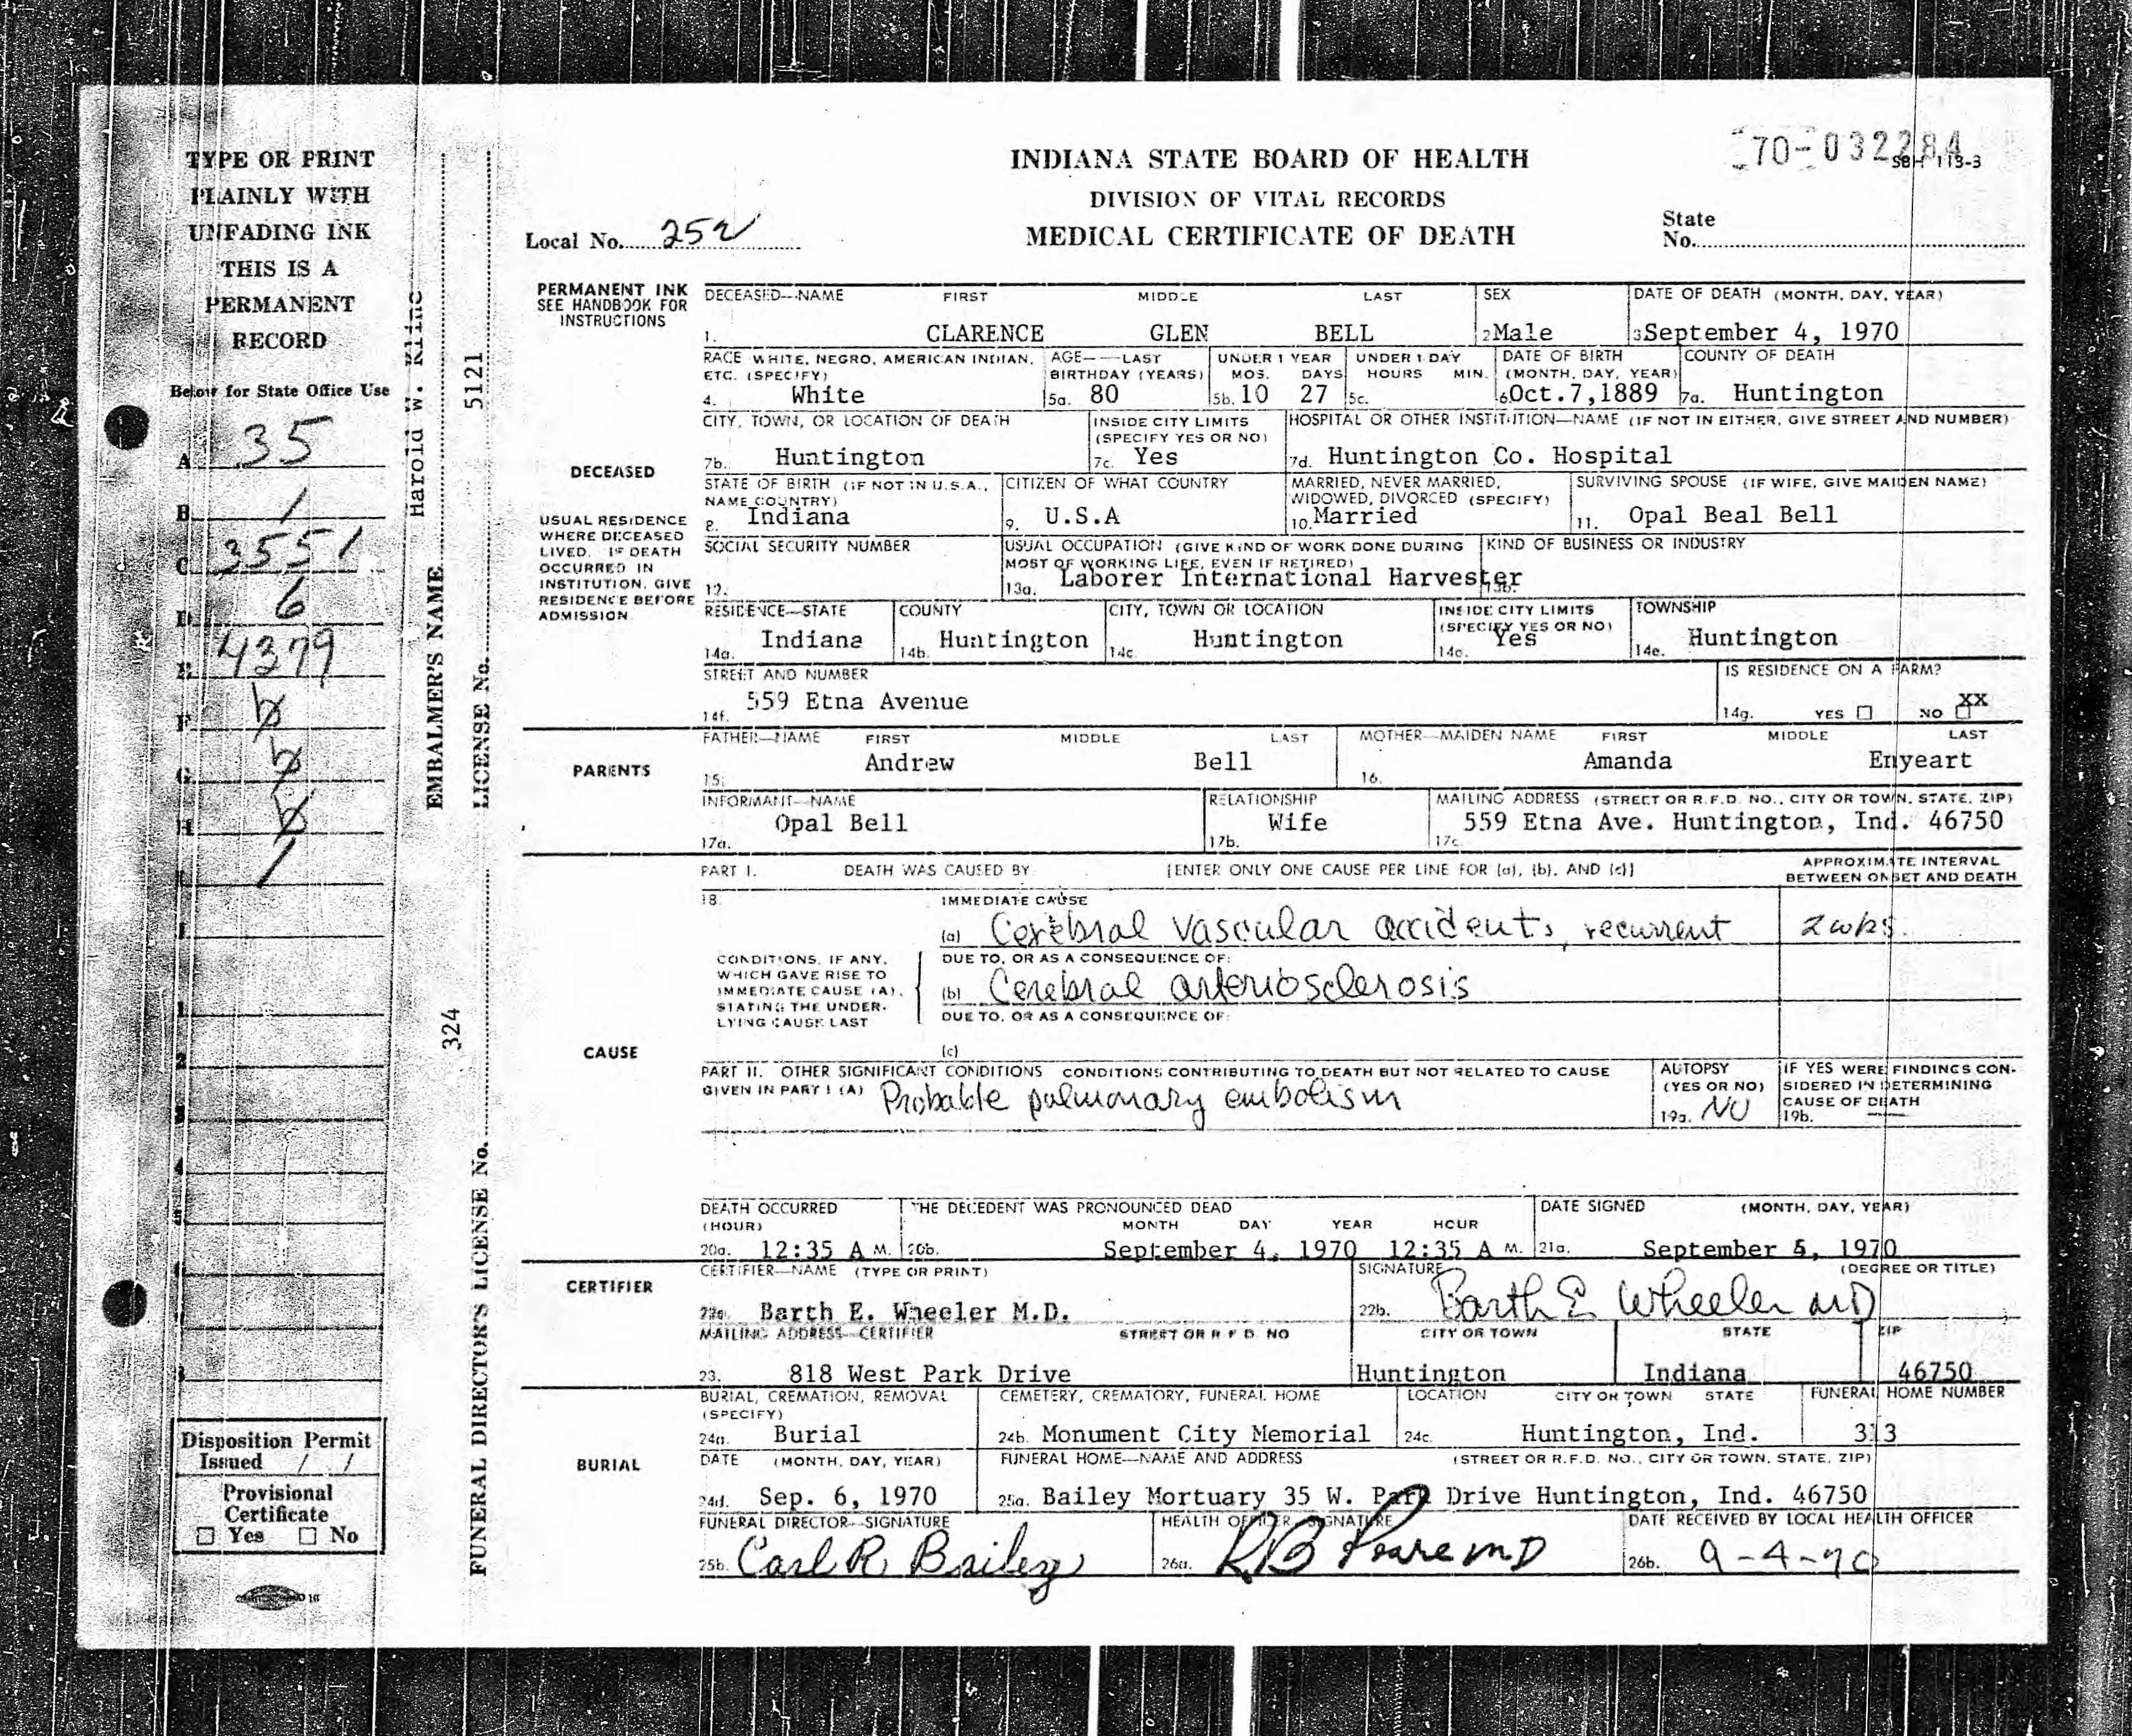 TYPE OR PRINT
PLAINLY WITH
UNFADING INK
THIS IS A
PERMANENT
RECORD
Below for State Office Use
A. 35
B. 1
C. 3551
D. 6
E. 4379
F.
G.
H.
I. 1
1
2
3
4
5
6
7
8
Disposition Permit
Issued / /
Provisional
Certificate
☐ Yes ☐ No
EMBALMER'S NAME Harold W. Kline
LICENSE No. 5121
FUNERAL DIRECTOR'S LICENSE No. 324
70-032284
SBH 113-3
INDIANA STATE BOARD OF HEALTH
DIVISION OF VITAL RECORDS
MEDICAL CERTIFICATE OF DEATH
Local No. 252
State
No.
PERMANENT INK
SEE HANDBOOK FOR
INSTRUCTIONS
DECEASED—NAME FIRST MIDDLE LAST SEX DATE OF DEATH (MONTH, DAY, YEAR)
1. CLARENCE GLEN BELL 2 Male 3 September 4, 1970
RACE WHITE, NEGRO, AMERICAN INDIAN, AGE—LAST UNDER 1 YEAR UNDER 1 DAY DATE OF BIRTH COUNTY OF DEATH
ETC. (SPECIFY) BIRTHDAY (YEARS) MOS. DAYS HOURS MIN. (MONTH, DAY, YEAR)
4. White 5a. 80 5b. 10 27 5c. 6 Oct. 7,1889 7a. Huntington
CITY, TOWN, OR LOCATION OF DEATH INSIDE CITY LIMITS HOSPITAL OR OTHER INSTITUTION—NAME (IF NOT IN EITHER, GIVE STREET AND NUMBER)
(SPECIFY YES OR NO)
7b. Huntington 7c. Yes 7d. Huntington Co. Hospital
DECEASED
STATE OF BIRTH (IF NOT IN U.S.A., CITIZEN OF WHAT COUNTRY MARRIED, NEVER MARRIED, SURVIVING SPOUSE (IF WIFE, GIVE MAIDEN NAME)
NAME COUNTRY) WIDOWED, DIVORCED (SPECIFY)
8. Indiana 9. U.S.A 10. Married 11. Opal Beal Bell
USUAL RESIDENCE
WHERE DECEASED
LIVED. IF DEATH
OCCURRED IN
INSTITUTION, GIVE
RESIDENCE BEFORE
ADMISSION
SOCIAL SECURITY NUMBER USUAL OCCUPATION (GIVE KIND OF WORK DONE DURING KIND OF BUSINESS OR INDUSTRY
MOST OF WORKING LIFE, EVEN IF RETIRED)
12. 13a. Laborer International Harvester 13b.
RESIDENCE—STATE COUNTY CITY, TOWN OR LOCATION INSIDE CITY LIMITS TOWNSHIP
(SPECIFY YES OR NO)
14a. Indiana 14b. Huntington 14c. Huntington 14d. Yes 14e. Huntington
STREET AND NUMBER IS RESIDENCE ON A FARM?
14f. 559 Etna Avenue 14g. YES ☐ NO ☐ XX
PARENTS
FATHER—NAME FIRST MIDDLE LAST MOTHER—MAIDEN NAME FIRST MIDDLE LAST
15. Andrew Bell 16. Amanda Enyeart
INFORMANT—NAME RELATIONSHIP MAILING ADDRESS (STREET OR R.F.D. NO., CITY OR TOWN, STATE, ZIP)
17a. Opal Bell 17b. Wife 17c. 559 Etna Ave. Huntington, Ind. 46750
PART I. DEATH WAS CAUSED BY [ENTER ONLY ONE CAUSE PER LINE FOR (a), (b), AND (c)] APPROXIMATE INTERVAL
BETWEEN ONSET AND DEATH
18. IMMEDIATE CAUSE
(a) Cerebral vascular accidents, recurrent 2 wks.
CONDITIONS, IF ANY,
WHICH GAVE RISE TO
IMMEDIATE CAUSE (A),
STATING THE UNDER-
LYING CAUSE LAST
DUE TO, OR AS A CONSEQUENCE OF:
(b) Cerebral arteriosclerosis
DUE TO, OR AS A CONSEQUENCE OF:
(c)
CAUSE
PART II. OTHER SIGNIFICANT CONDITIONS CONDITIONS CONTRIBUTING TO DEATH BUT NOT RELATED TO CAUSE AUTOPSY IF YES WERE FINDINGS CON-
GIVEN IN PART I (A) Probable pulmonary embolism (YES OR NO) SIDERED IN DETERMINING
CAUSE OF DEATH
19a. NO 19b. —
DEATH OCCURRED THE DECEDENT WAS PRONOUNCED DEAD DATE SIGNED (MONTH, DAY, YEAR)
(HOUR) MONTH DAY YEAR HOUR
20a. 12:35 A M. 20b. September 4, 1970 12:35 A M. 21a. September 5, 1970
CERTIFIER
CERTIFIER—NAME (TYPE OR PRINT) SIGNATURE (DEGREE OR TITLE)
22a. Barth E. Wheeler M.D. 22b. Barth E Wheeler MD
MAILING ADDRESS—CERTIFIER STREET OR R F D. NO CITY OR TOWN STATE ZIP
23. 818 West Park Drive Huntington Indiana 46750
BURIAL, CREMATION, REMOVAL CEMETERY, CREMATORY, FUNERAL HOME LOCATION CITY OR TOWN STATE FUNERAL HOME NUMBER
(SPECIFY)
24a. Burial 24b. Monument City Memorial 24c. Huntington, Ind. 313
BURIAL
DATE (MONTH, DAY, YEAR) FUNERAL HOME—NAME AND ADDRESS (STREET OR R.F.D. NO., CITY OR TOWN, STATE, ZIP)
24d. Sep. 6, 1970 25a. Bailey Mortuary 35 W. Park Drive Huntington, Ind. 46750
FUNERAL DIRECTOR—SIGNATURE HEALTH OFFICER SIGNATURE DATE RECEIVED BY LOCAL HEALTH OFFICER
25b. Carl R Bailey 26a. MD 26b. 9-4-70